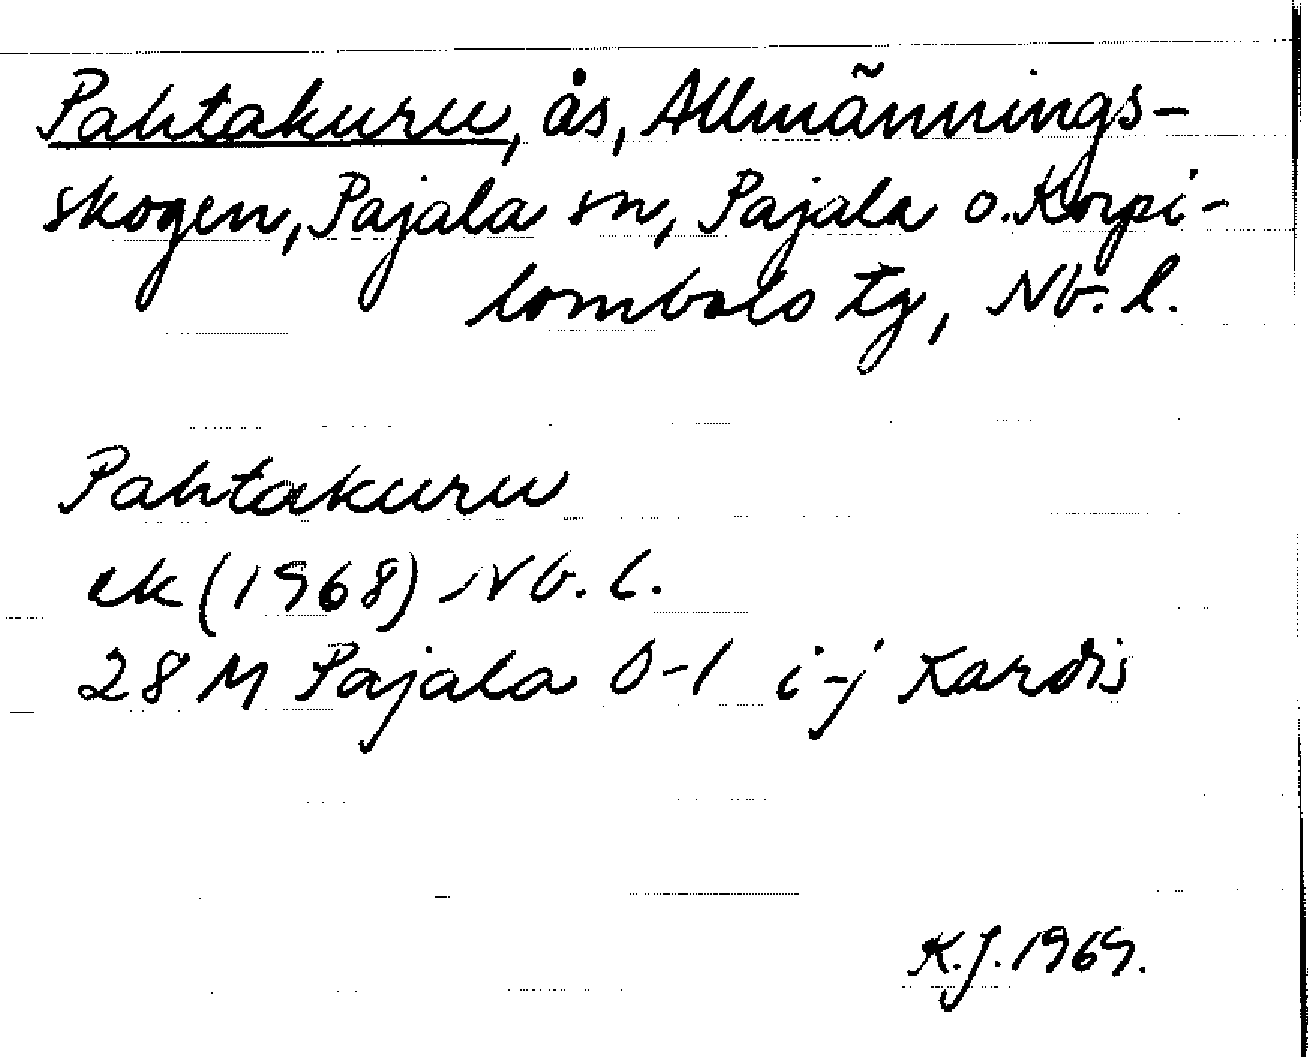 Pahtakuru, ås, Allmännings-
skogen, Pajala sn, Pajala o. Korpi-
lombolo tg, Nb. l.
Pahtakuru
ek (1968) Nb. l.
28 M Pajala 0-1 i-j Kardis
K.J. 1969.